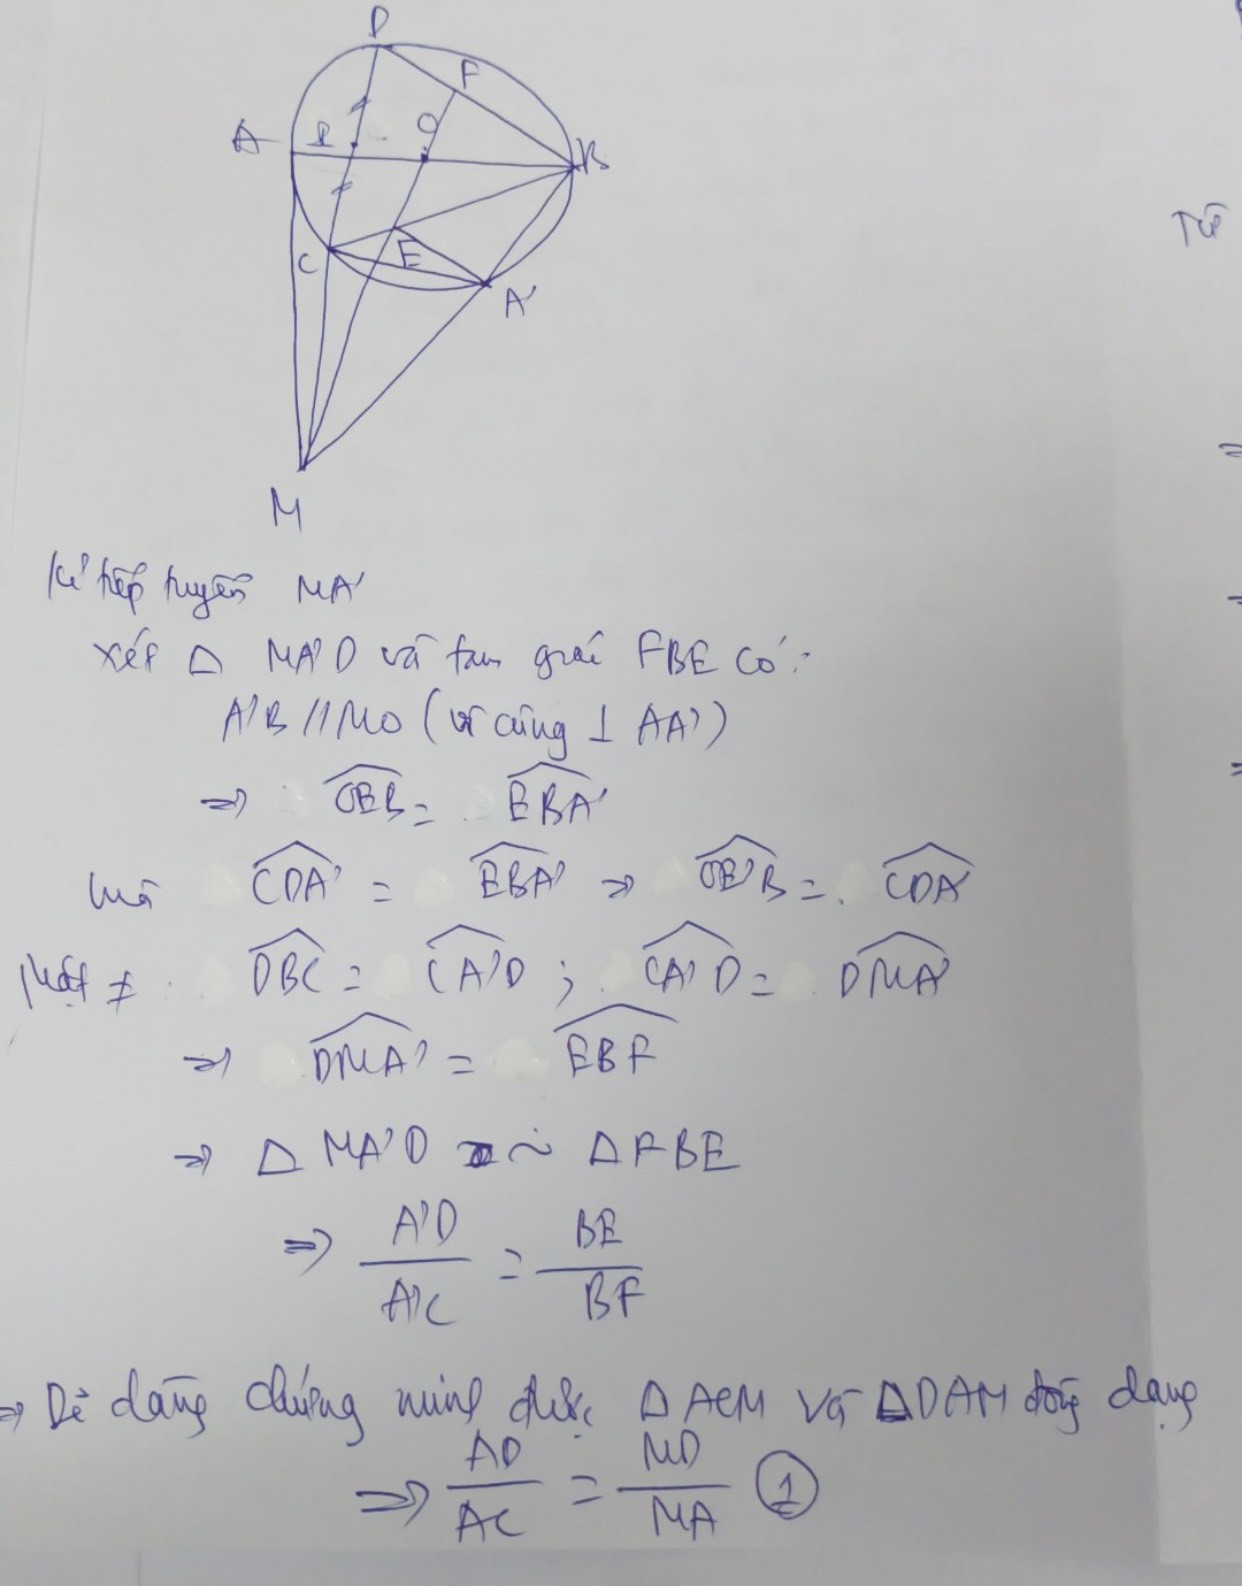 D
F
A I O B
C E A'
M
Từ
Kẻ tiếp tuyến MA'
xét Δ MA'D và tam giác FBE có:
A'B // MO (vì cùng ⊥ AA')
=> OEB = EBA'
mà CDA' = EBA' => OEB = CDA'
Mặt ≠ DBC = CA'D ; CA'D = DMA'
=> DMA' = EBF
=> Δ MA'D ~ Δ FBE
=> A'D / A'C = BE / BF
=> Dễ dàng chứng minh được Δ ACM và Δ DAM đồng dạng
=> AD / AC = MD / MA ①